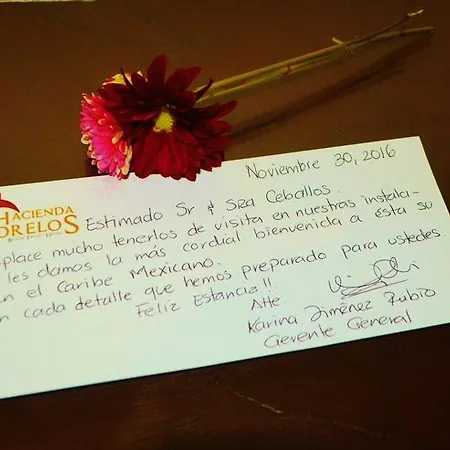 Noviembre 30, 2016
HACIENDA
ORELOS
Estimado Sr & Sra Ceballos.
place mucho tenerlos de visita en nuestras instala-
les damos la más cordial bienvenida a ésta su
en el Caribe Mexicano.
cada detalle que hemos preparado para ustedes.
Feliz Estancia!!
Atte.
Karina Jiménez Rubio
Gerente General